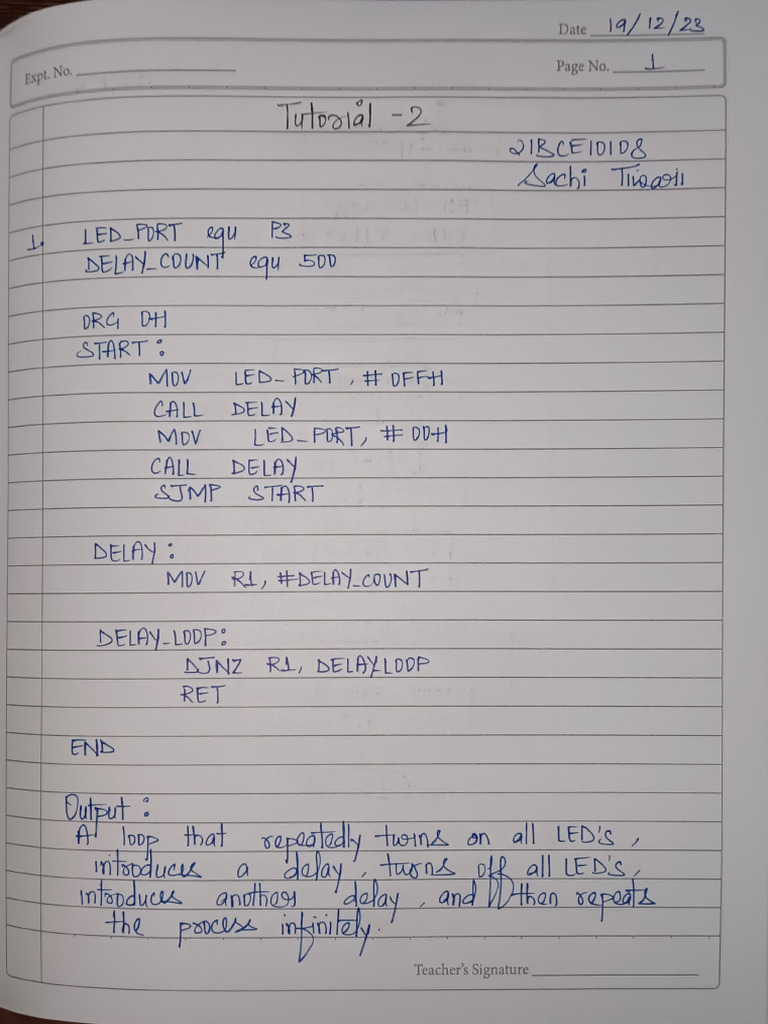 Date 19/12/23
Expt. No.
Page No. 1
Tutorial -2
21BCE10108
Sachi Tiwari
1. LED_PORT equ P3
DELAY_COUNT equ 500
ORG 0H
START:
MOV LED_PORT, #0FFH
CALL DELAY
MOV LED_PORT, #00H
CALL DELAY
SJMP START
DELAY:
MOV R1, #DELAY_COUNT
DELAY_LOOP:
DJNZ R1, DELAYLOOP
RET
END
Output:
A loop that repeatedly turns on all LED's,
introduces a delay, turns off all LED's,
introduces another delay, and then repeats
the process infinitely.
Teacher's Signature